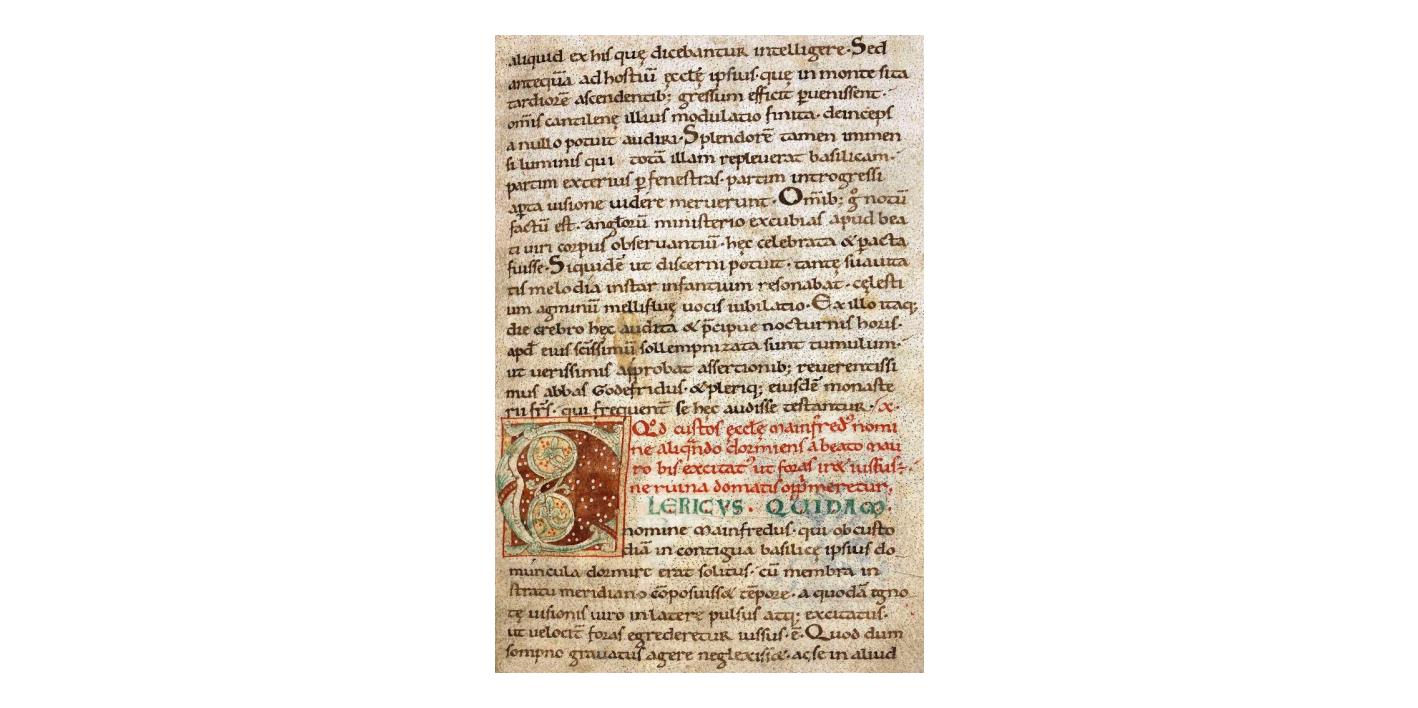 aliquid ex his quę dicebantur intelligere. Sed
anteqũa ad hostiũ ęcclę ipsius. que in monte sita
tardiorē ascendentib; gressum efficit puenissent.
om̄is cantilenę illius modulatio finita. deinceps
a nullo potuit audiri. Splendorē tamen immen
si luminis qui totā illam repleuerat basilicam.
partim exterius p fenestras. partim introgressi
apta uisione uidere meruerunt. Om̄ib; g notū
factū est. anglorū ministerio excubias apud bea
ti uiri corpus obseruantiū. hęc celebrata & pacta
fuisse. Siquidē ut discerni potuit. tantę suauita
tis melodia instar infantium resonabat. cęlesti
um agminū mellifluę uocis iubilatio. Ex illo itaq;
die crebro hęc audita & p̄cipue nocturnis horis.
apd̄ eius scīssimū sollempnizata sunt tumulum.
ut uerissimis approbat assertionib; reuerentissi
mus abbas Godefridus. & pleriq; eiusdē monaste
rii frs̄. qui frequent̄ se hęc audisse testantur. x.
Qd̄ custos ęcclę mainfred' nomi
ne aliqn̄do dormiens a beato mau
ro bis excitat' ut foras iret iussus:
ne ruina domatis opp̄meretur.
CLERICVS. QUIDAM.
nomine Mainfredus. qui ob custo
diā in contigua basilicę ipsius do
muncula dormire erat solitus. cū membra in
stratu meridiano cōposuiss& tēpore. a quodā igno
tę uisionis uiro in latere pulsus atq; excitatus.
ut uelocit̄ foras egrederetur iussus .ē. Quod dum
sompno grauatus agere neglexiss&. ac se in aliud